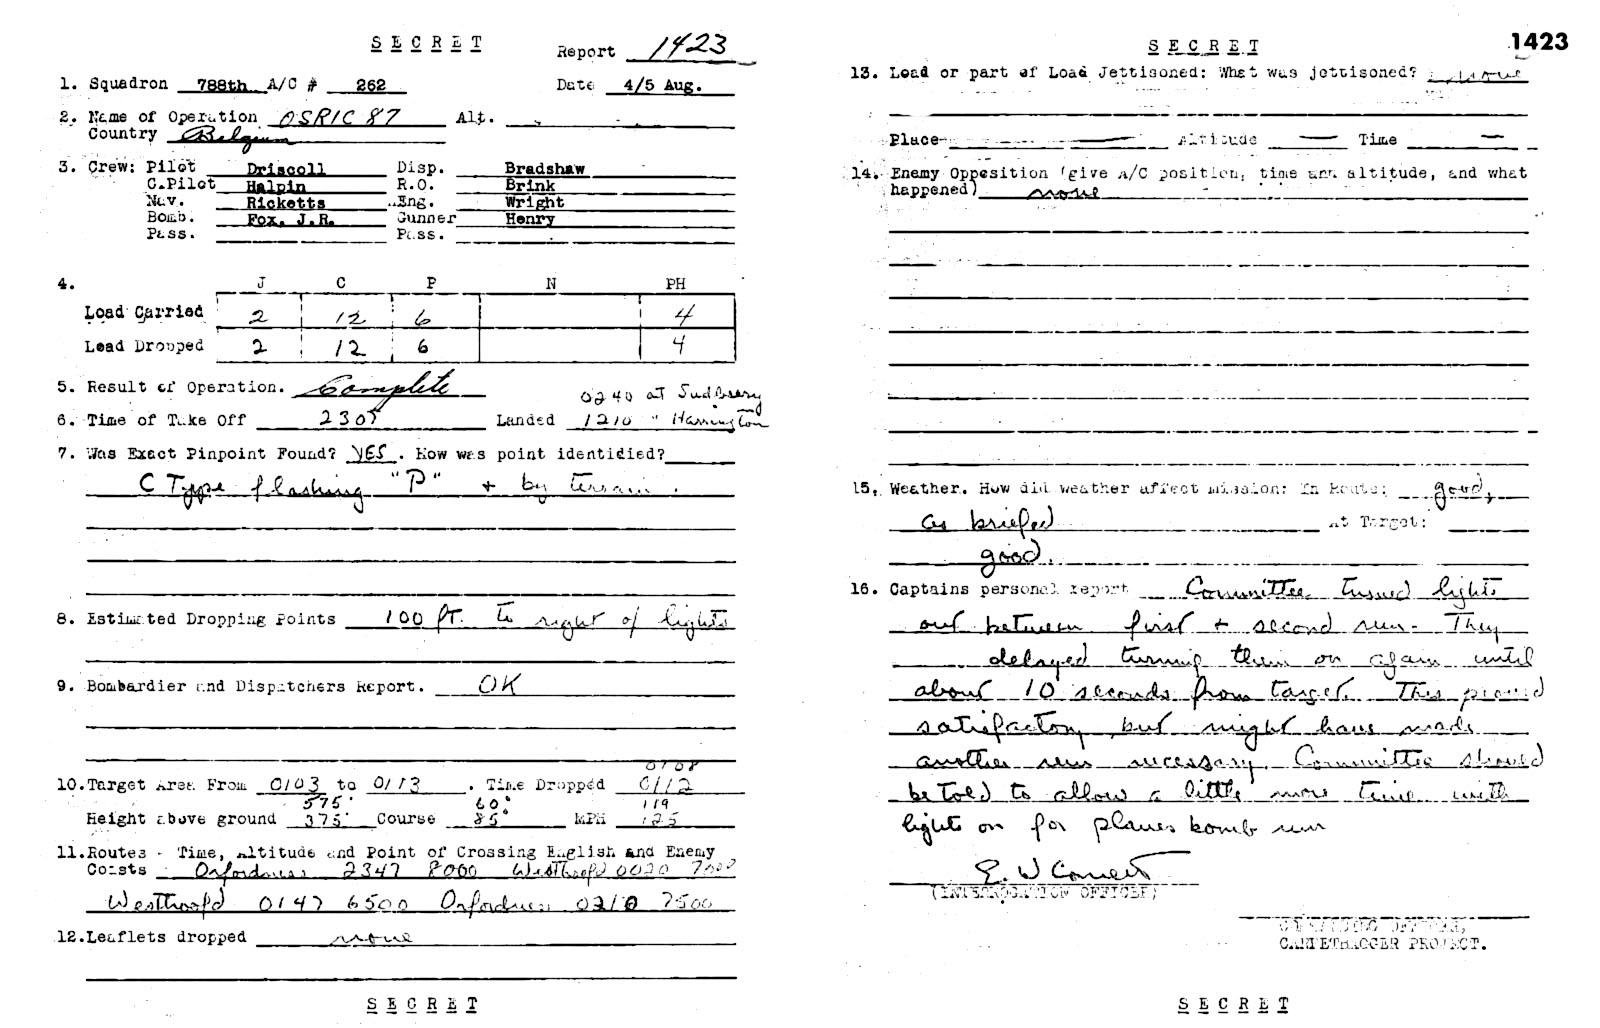 SECRET
Report 1423
1. Squadron 788th A/C # 262 Date 4/5 Aug.
2. Name of Operation OSRIC 87 Alt.
Country Belgium
3. Crew: Pilot Driscoll Disp. Bradshaw
C.Pilot Halpin R.O. Brink
Nav. Ricketts Eng. Wright
Bomb. Fox, J.R. Gunner Henry
Pass. Pass.
4. J C P N PH
Load Carried 2 12 6 4
Load Dropped 2 12 6 4
5. Result of Operation. Complete 0240 at Sudbury
6. Time of Take Off 2305 Landed 1210 " Harrington
7. Was Exact Pinpoint Found? YES. How was point identidied?
C Type flashing "P" + by terrain.
8. Estimated Dropping Points 100 ft. to right of lights
9. Bombardier and Dispatchers Report. OK
0708
10. Target Area From 0103 to 0113. Time Dropped 0112
575' 60° 119
Height above ground 375' Course 85° MPH 125
11. Routes - Time, Altitude and Point of Crossing English and Enemy
Coasts Orfordness 2347 8000 Westhoofd 0020 7000
Westhoofd 0147 6500 Orfordness 0210 7500
12. Leaflets dropped none
SECRET
SECRET
1423
13. Load or part of Load Jettisoned: What was jettisoned? none
Place — Altitude — Time —
14. Enemy Opposition (give A/C position, time and altitude, and what
happened) none
15. Weather. How did weather affect mission: In Route: good,
as briefed At Target:
good.
16. Captains personal report Committee turned lights
out between first + second run. They
delayed turning them on again until
about 10 seconds from target. This proved
satisfactory but might have made
another run necessary. Committee should
be told to allow a little more time with
lights on for planes bomb run
(INTERROGATION OFFICER)
COMMANDING OFFICER,
CARPETBAGGER PROJECT.
SECRET